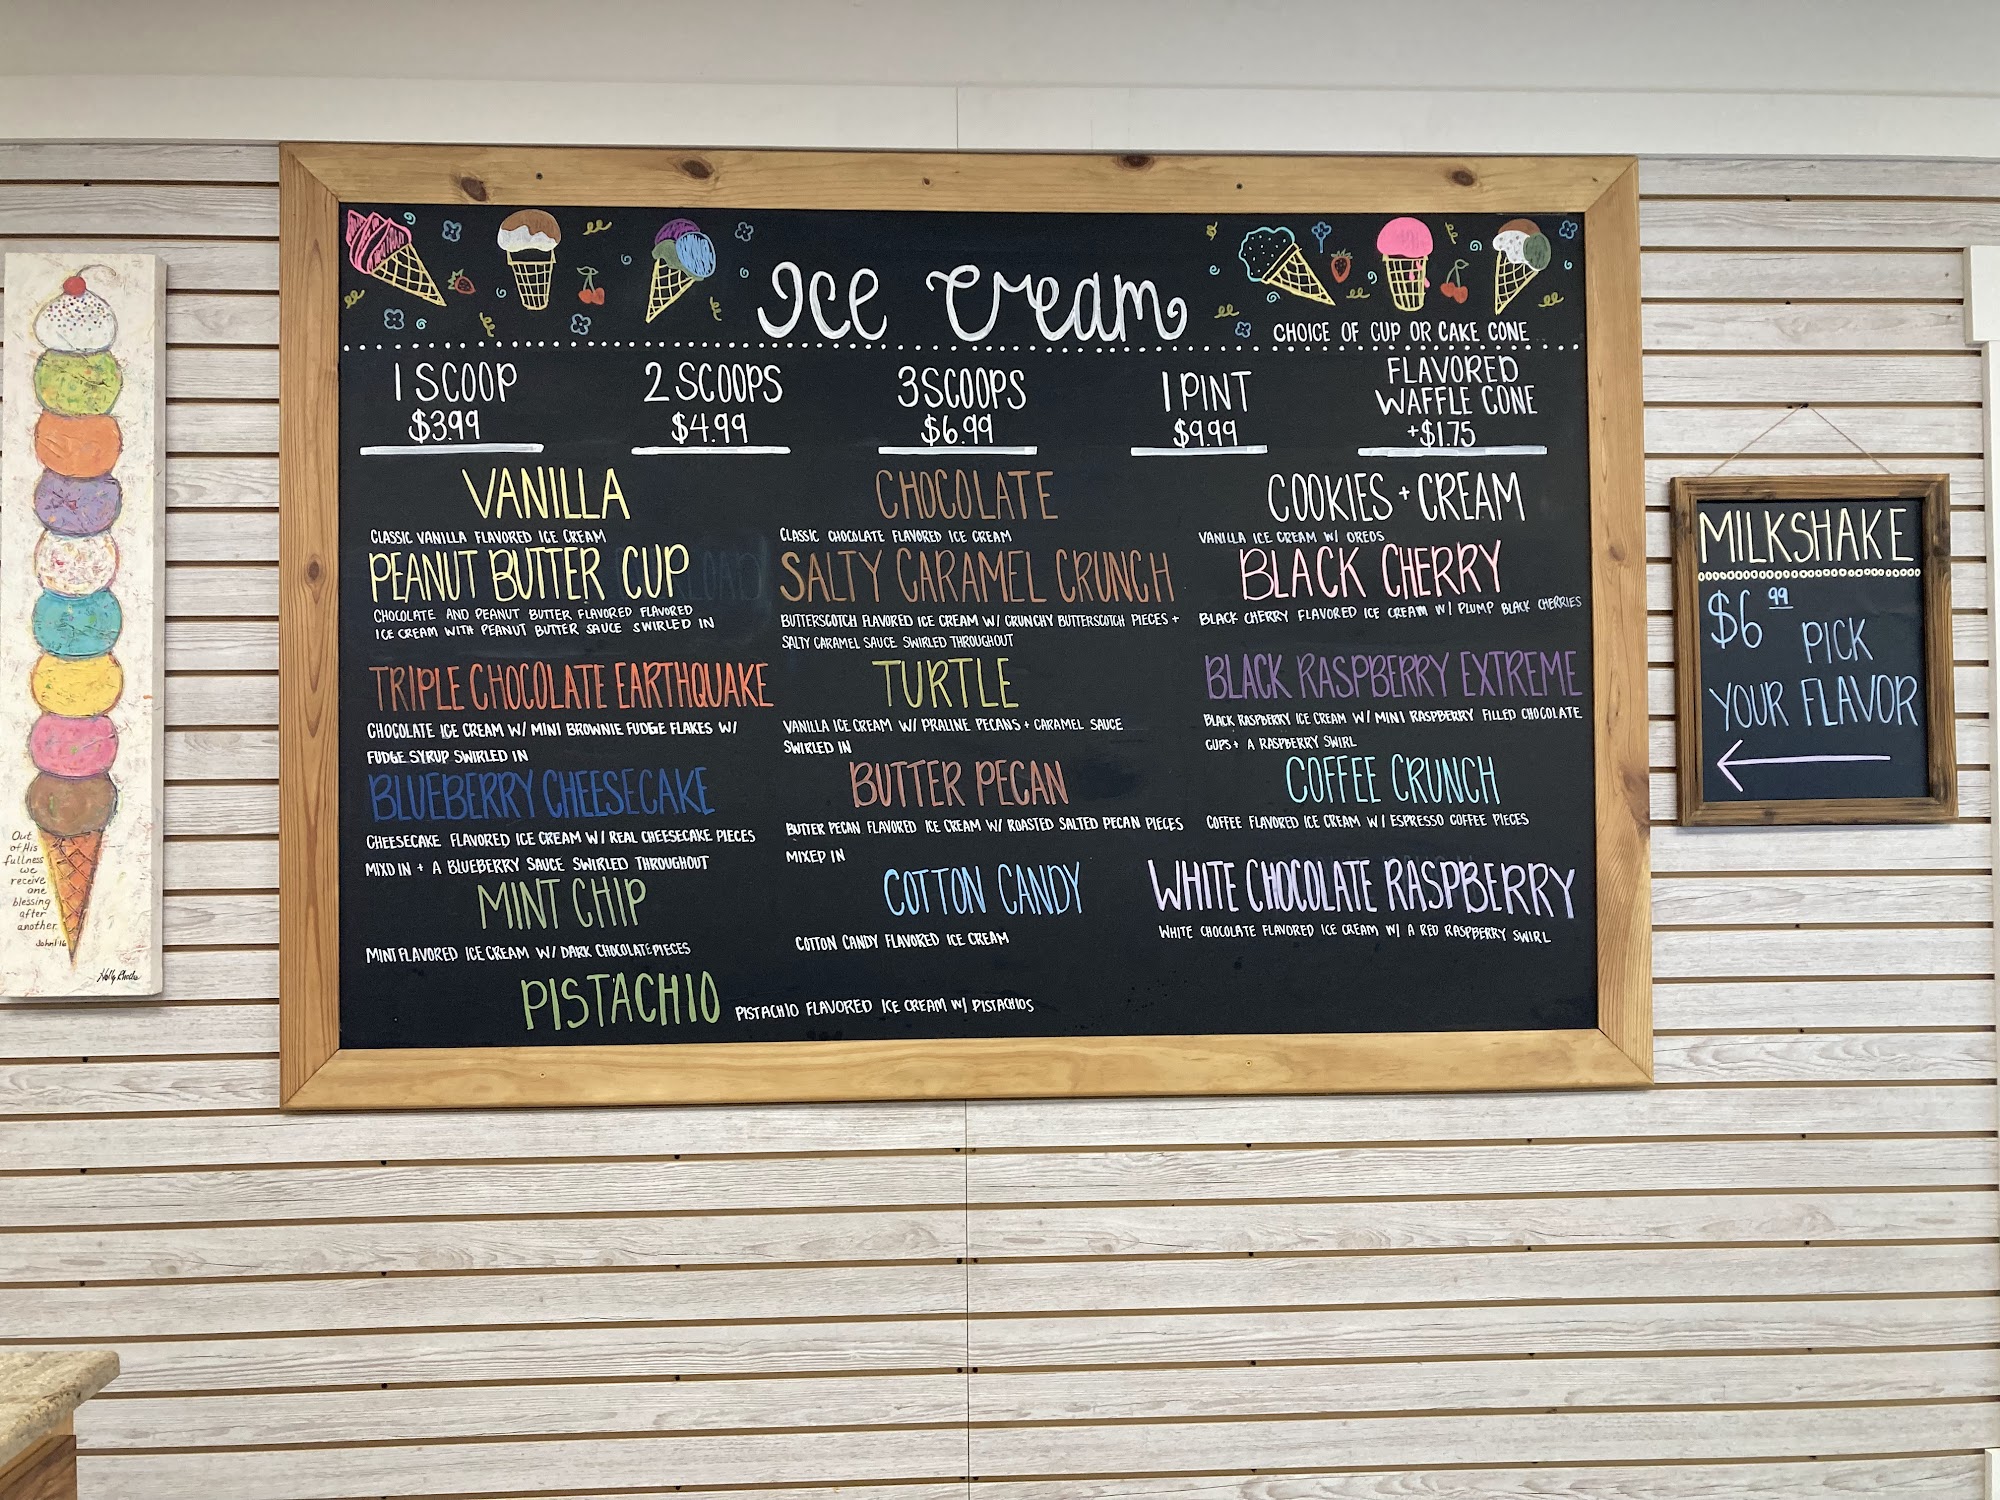 Ice Cream
CHOICE OF CUP OR CAKE CONE
1 SCOOP
$3.99
2 SCOOPS
$4.99
3 SCOOPS
$6.99
1 PINT
$9.99
FLAVORED
WAFFLE CONE
+$1.75
VANILLA
CLASSIC VANILLA FLAVORED ICE CREAM
PEANUT BUTTER CUP
CHOCOLATE AND PEANUT BUTTER FLAVORED FLAVORED
ICE CREAM WITH PEANUT BUTTER SAUCE SWIRLED IN
TRIPLE CHOCOLATE EARTHQUAKE
CHOCOLATE ICE CREAM W/ MINI BROWNIE FUDGE FLAKES W/
FUDGE SYRUP SWIRLED IN
BLUEBERRY CHEESECAKE
CHEESECAKE FLAVORED ICE CREAM W/ REAL CHEESECAKE PIECES
MIXD IN + A BLUEBERRY SAUCE SWIRLED THROUGHOUT
MINT CHIP
MINT FLAVORED ICE CREAM W/ DARK CHOCOLATE PIECES
PISTACHIO
PISTACHIO FLAVORED ICE CREAM W/ PISTACHIOS
CHOCOLATE
CLASSIC CHOCOLATE FLAVORED ICE CREAM
SALTY CARAMEL CRUNCH
BUTTERSCOTCH FLAVORED ICE CREAM W/ CRUNCHY BUTTERSCOTCH PIECES +
SALTY CARAMEL SAUCE SWIRLED THROUGHOUT
TURTLE
VANILLA ICE CREAM W/ PRALINE PECANS + CARAMEL SAUCE
SWIRLED IN
BUTTER PECAN
BUTTER PECAN FLAVORED ICE CREAM W/ ROASTED SALTED PECAN PIECES
MIXED IN
COTTON CANDY
COTTON CANDY FLAVORED ICE CREAM
COOKIES + CREAM
VANILLA ICE CREAM W/ OREOS
BLACK CHERRY
BLACK CHERRY FLAVORED ICE CREAM W/ PLUMP BLACK CHERRIES
BLACK RASPBERRY EXTREME
BLACK RASPBERRY ICE CREAM W/ MINI RASPBERRY FILLED CHOCOLATE
CUPS + A RASPBERRY SWIRL
COFFEE CRUNCH
COFFEE FLAVORED ICE CREAM W/ ESPRESSO COFFEE PIECES
WHITE CHOCOLATE RASPBERRY
WHITE CHOCOLATE FLAVORED ICE CREAM W/ A RED RASPBERRY SWIRL
MILKSHAKE
$6 99
PICK
YOUR FLAVOR
Out
of His
fullness
we
receive
one
blessing
after
another.
John 1:16